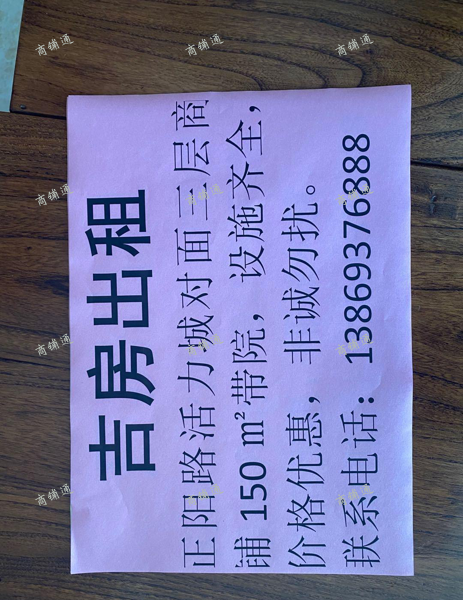 吉房出租
正阳路活力城对面三层商
铺 150 m²带院，设施齐全，
价格优惠，非诚勿扰。
联系电话：13869376888
商铺通
商铺通
商铺通
商铺通
商铺通
商铺通
商铺通
商铺通
商铺通
商铺通
商铺通
商铺通